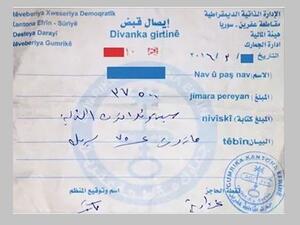 Rêveberiya Xweseriya Demoqratîk
Kantona Efrîn - Sûriyê
Desteya Darayî
Rêveberiya Gumrikê
إيصال قبض
Divanka girtinê
الإدارة الذاتية الديمقراطية
مقاطعة عفرين ـ سوريا
هيئة المالية
إدارة الجمارك
١٠
٢٠١٦ / ٢ /
الاسم:
Nav û paş nav:
٣٧٥٠٠
المبلغ:
Jimara pereyan:
المبلغ (كتابة):
nivîskî
مازوت ٧٥ برميل
البيان:
têbîn
نقطة الحاجز
اسم وتوقيع المنظم